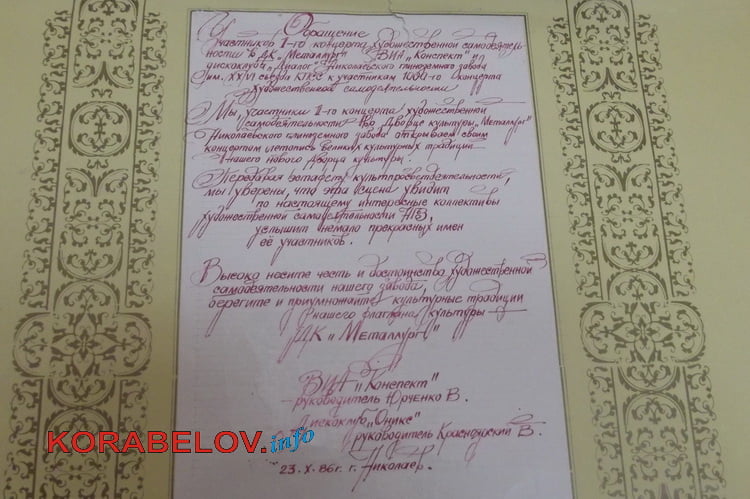 Обращение
Участников I-го концерта художественной самодеятель-
ности в ДК „Металлург" ВИА „Конспект" и
дискоклуба „Диалог" Николаевского глиноземного завода
им. XXVI съезда КПСС к участникам 1000-го концерта
художественной самодеятельности
Мы, участники I-го концерта художественной
самодеятельности во Дворце культуры „Металлург"
Николаевского глиноземного завода открываем своим
концертом летопись великих культурных традиций
нашего нового Дворца культуры.
Передавая эстафету культпросветдеятельности,
мы уверены, что эта сцена увидит
по настоящему интересные коллективы
художественной самодеятельности НГЗ,
услышит немало прекрасных имен
её участников.
Высоко носите честь и достоинство художественной
самодеятельности нашего завода,
берегите и приумножайте культурные традиции
нашего флагмана культуры —
ДК „Металлург"
ВИА „Конспект"
— руководитель Юрченко В.
Дискоклуб „Оникс"
руководитель Красноярский В.
KORABELOV.info
23. X. 86г. г. Николаев.